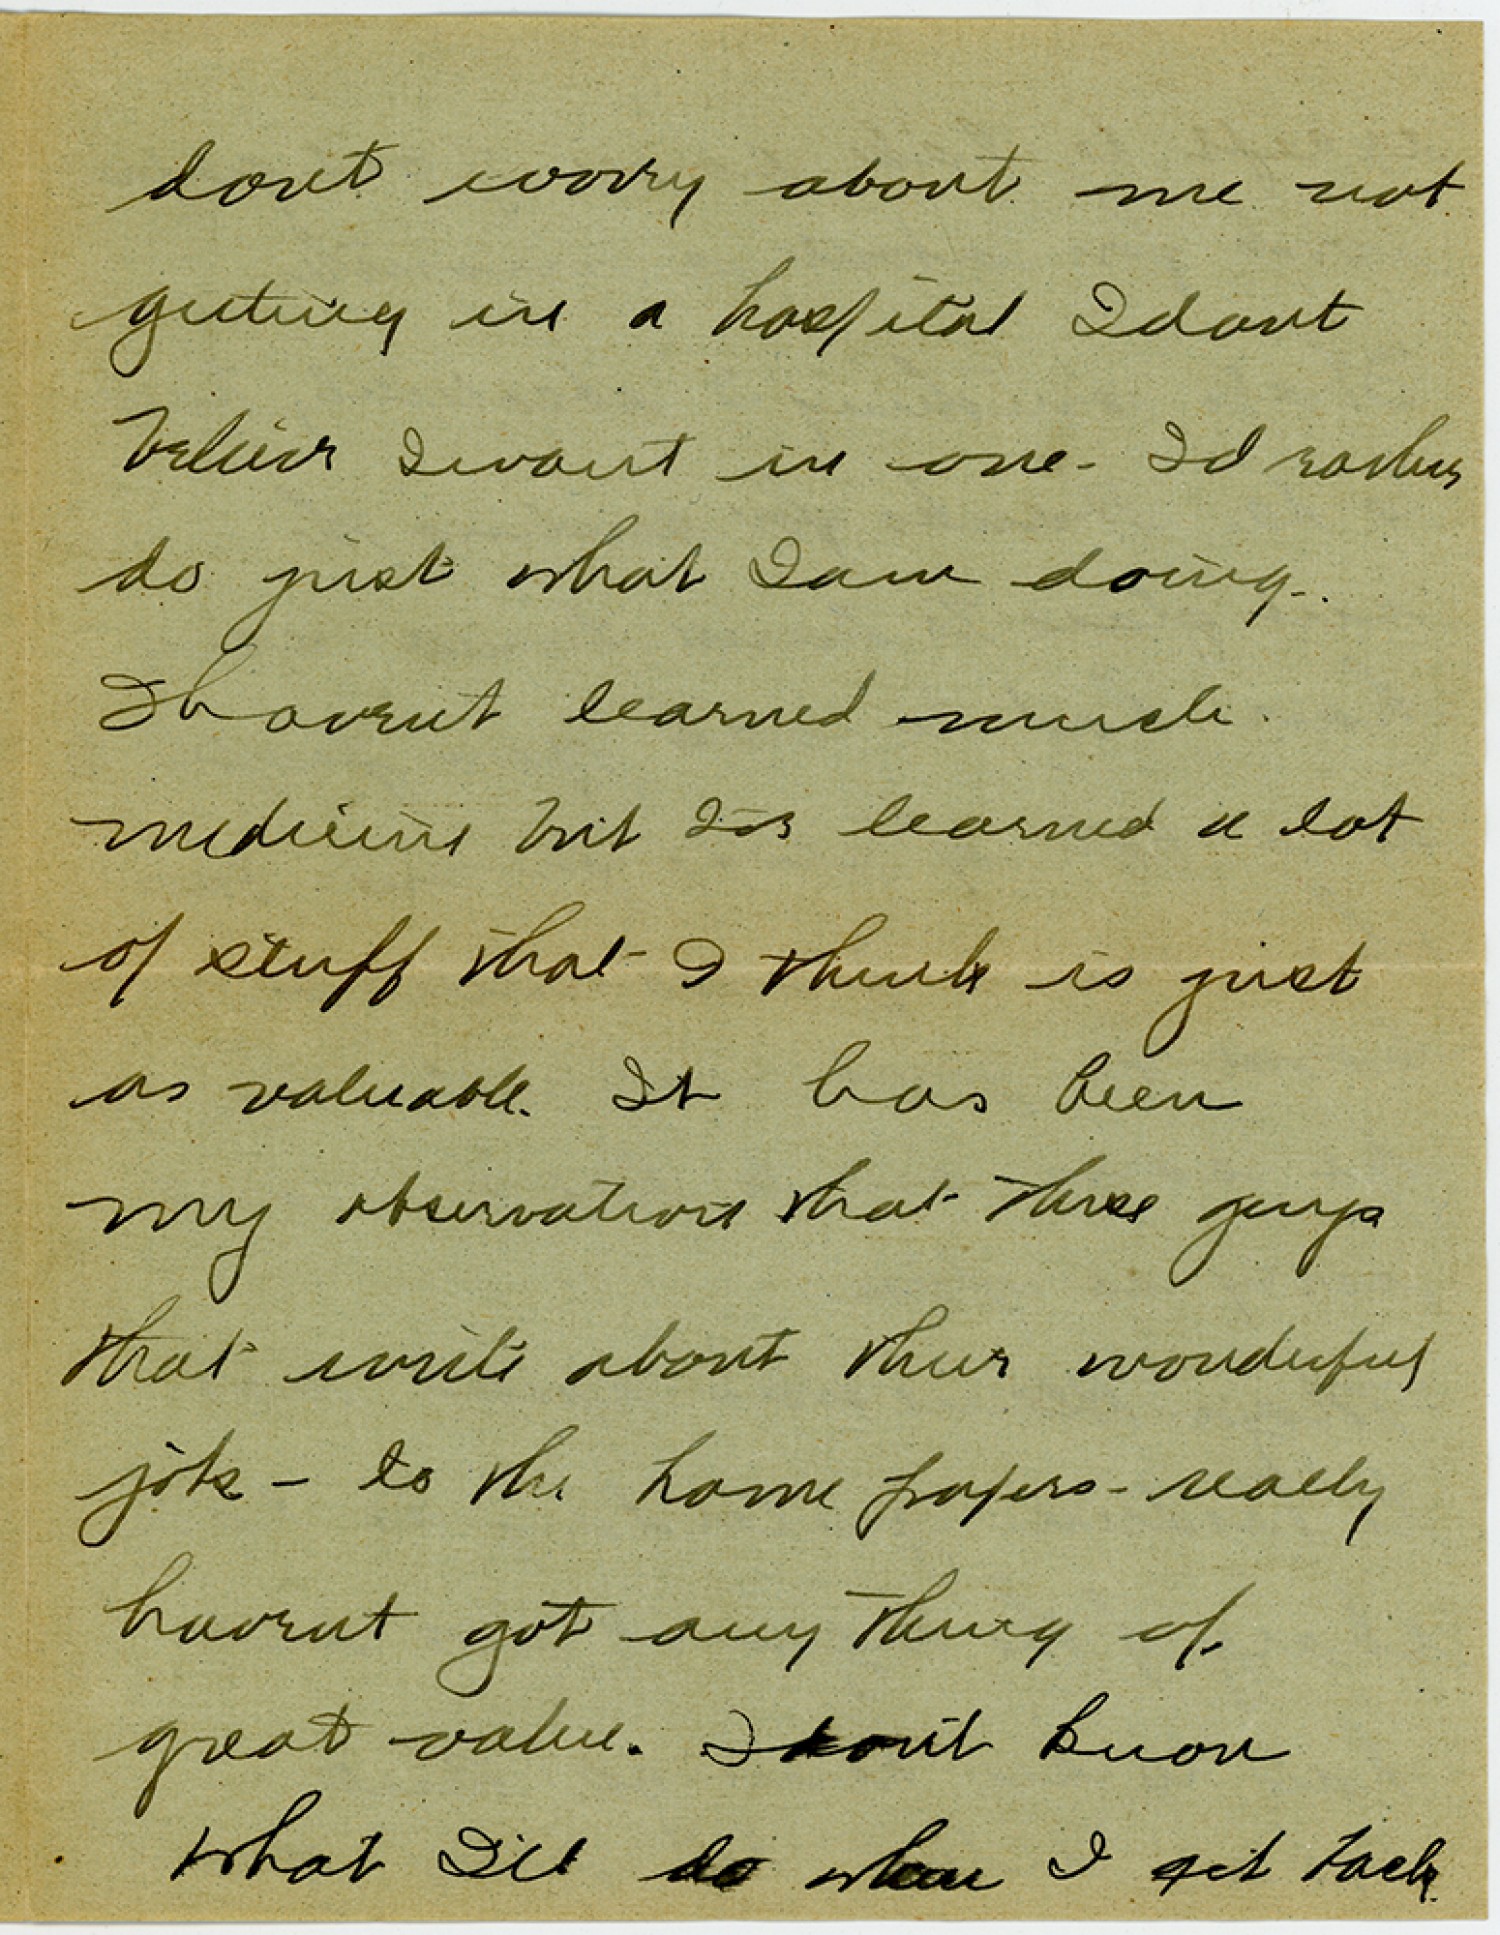 dont worry about me not
getting in a hospital I dont
believe I want in one - Id rather
do just what I am doing.
I havent learned much
medicine but Ive learned a lot
of stuff that I think is just
as valuable. It has been
my observation that these guys
that write about their wonderful
jobs - to the home papers - really
havent got any thing of
great value. I dont know
what Ill do when I get back